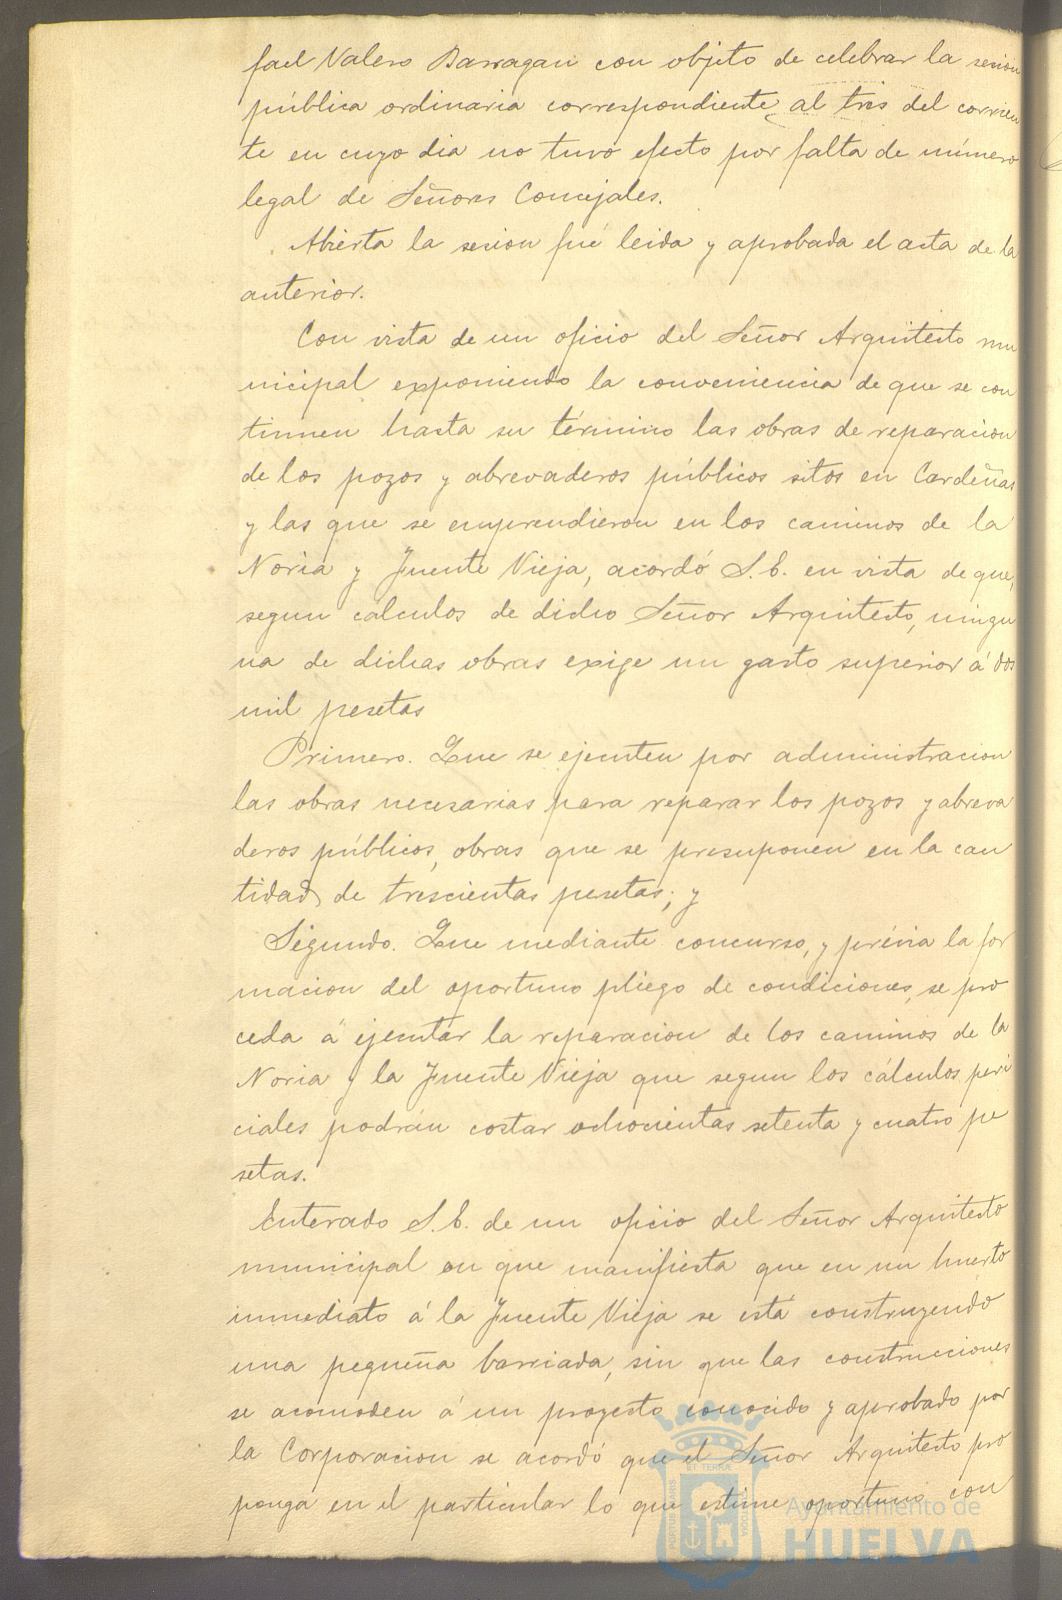 fael Valero Barragan con objeto de celebrar la sesion
pública ordinaria correspondiente al tres del corrien
te en cuyo dia no tuvo efecto por falta de número
legal de Señores Concejales.
Abierta la sesion fué leida y aprobada el acta de la
anterior.
Con vista de un oficio del Señor Arquitecto mu
nicipal exponiendo la conveniencia de que se con
tinuen hasta su término las obras de reparacion
de los pozos y abrevaderos públicos sitos en Cardeñas
y las que se emprendieron en los caminos de la
Noria y Fuente Vieja, acordó S.E. en vista de que,
segun cálculos de dicho Señor Arquitecto, ningu
na de dichas obras exige un gasto superior á dos
mil pesetas
Primero. Que se ejecuten por administracion
las obras necesarias para reparar los pozos y abreva
deros públicos, obras que se presuponen en la can
tidad de trescientas pesetas; y
Segundo. Que mediante concurso, y prévia la for
macion del oportuno pliego de condiciones, se pro
ceda á ejecutar la reparacion de los caminos de la
Noria y la Fuente Vieja que segun los cálculos peri
ciales podrán costar ochocientas setenta y cuatro pe
setas.
Enterado S.E. de un oficio del Señor Arquitecto
municipal en que manifiesta que en un huerto
inmediato á la Fuente Vieja se está construyendo
una pequeña barriada, sin que las construcciones
se acomoden á un proyecto conocido y aprobado por
la Corporacion se acordó que el Señor Arquitecto pro
ponga en el particular lo que estime oportuno con
Ayuntamiento de
HUELVA